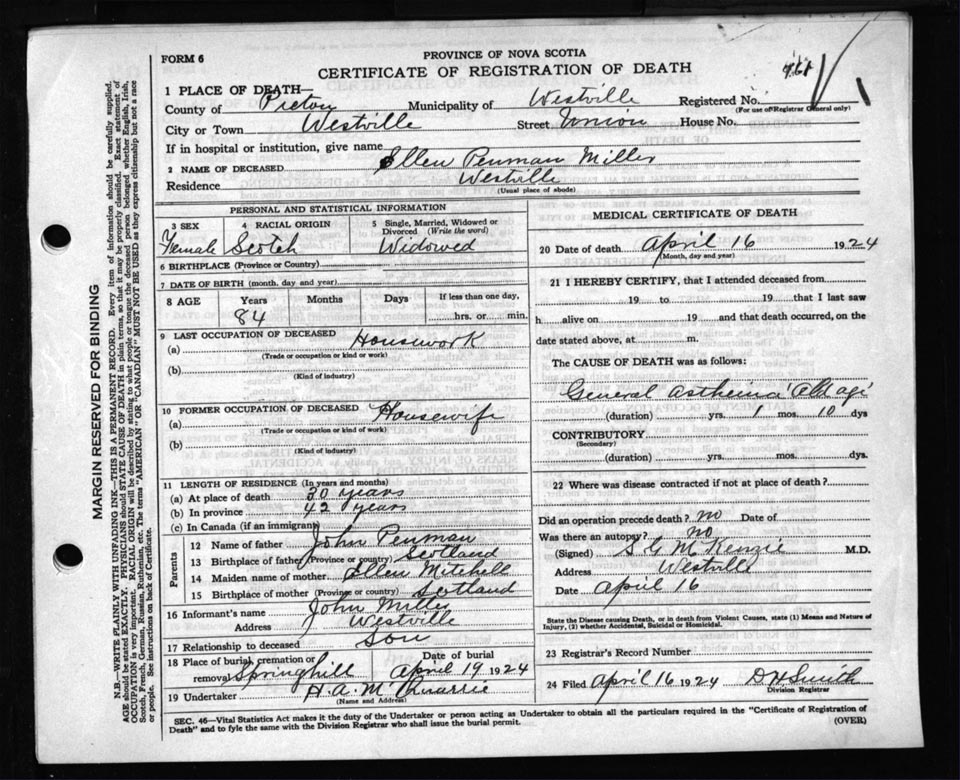 FORM 6
PROVINCE OF NOVA SCOTIA
CERTIFICATE OF REGISTRATION OF DEATH
1 PLACE OF DEATH—
County of Pictou Municipality of Westville Registered No.
(For use of Registrar General only)
City or Town Westville Street Union House No.
If in hospital or institution, give name
2 NAME OF DECEASED Ellen Penman Miller
Residence Westville
(Usual place of abode)
PERSONAL AND STATISTICAL INFORMATION
3 SEX 4 RACIAL ORIGIN 5 Single, Married, Widowed or Divorced (Write the word)
Female Scotch Widowed
6 BIRTHPLACE (Province or Country)
7 DATE OF BIRTH (month, day and year)
8 AGE Years Months Days If less than one day,
84 hrs. or min.
9 LAST OCCUPATION OF DECEASED Housework
(a)
(Trade or occupation or kind or work)
(b)
(Kind of industry)
10 FORMER OCCUPATION OF DECEASED Housewife
(a)
(Trade or occupation or kind or work)
(b)
(Kind of industry)
11 LENGTH OF RESIDENCE (In years and months)
(a) At place of death 30 years
(b) In province 42 years
(c) In Canada (if an immigrant)
Parents
12 Name of father John Penman
13 Birthplace of father (Province or country) Scotland
14 Maiden name of mother Ellen Mitchell
15 Birthplace of mother (Province or country) Scotland
16 Informant's name John Miller
Address Westville
17 Relationship to deceased Son
18 Place of burial, cremation or removal Springhill Date of burial April 19 1924
19 Undertaker H. A. McQuarrie
(Name and Address)
MEDICAL CERTIFICATE OF DEATH
20 Date of death April 16 1924
(Month, day and year)
21 I HEREBY CERTIFY, that I attended deceased from
19 to 19 that I last saw
h alive on 19 and that death occurred, on the
date stated above, at m.
The CAUSE OF DEATH was as follows:
General
(duration) yrs. 1 mos. 10 dys
CONTRIBUTORY
(Secondary)
(duration) yrs. mos. dys.
22 Where was disease contracted if not at place of death?
Did an operation precede death? no Date of
Was there an autopsy? no
(Signed) S G McKenzie M.D.
Address Westville
Date April 16
State the Disease causing Death, or in death from Violent Causes, state (1) Means and Nature of
Injury, (2) whether Accidental, Suicidal or Homicidal.
23 Registrar's Record Number
24 Filed April 16 1924 D H Smith
Division Registrar
SEC. 46—Vital Statistics Act makes it duty of the Undertaker or person acting as Undertaker to obtain all the particulars required in the "Certificate of Registration of
Death" and to fyle the same with the Division Registrar who shall issue the burial permit. (OVER)
MARGIN RESERVED FOR BINDING
N.B.—WRITE PLAINLY WITH UNFADING INK—THIS IS A PERMANENT RECORD. Every item of information should be carefully supplied.
AGE should be stated EXACTLY. PHYSICIANS should STATE CAUSE OF DEATH in plain terms, so that it may be properly classified. Exact statement of
OCCUPATION is very important. RACIAL ORIGIN will be described by stating to what people or tongue the deceased person belonged whether English, Irish,
Scotch, French, German, Russian, Ruthenian, etc. The terms "AMERICAN" or "CANADIAN" MUST NOT BE USED as they express citizenship but not a race
or people. See instructions on back of Certificate.